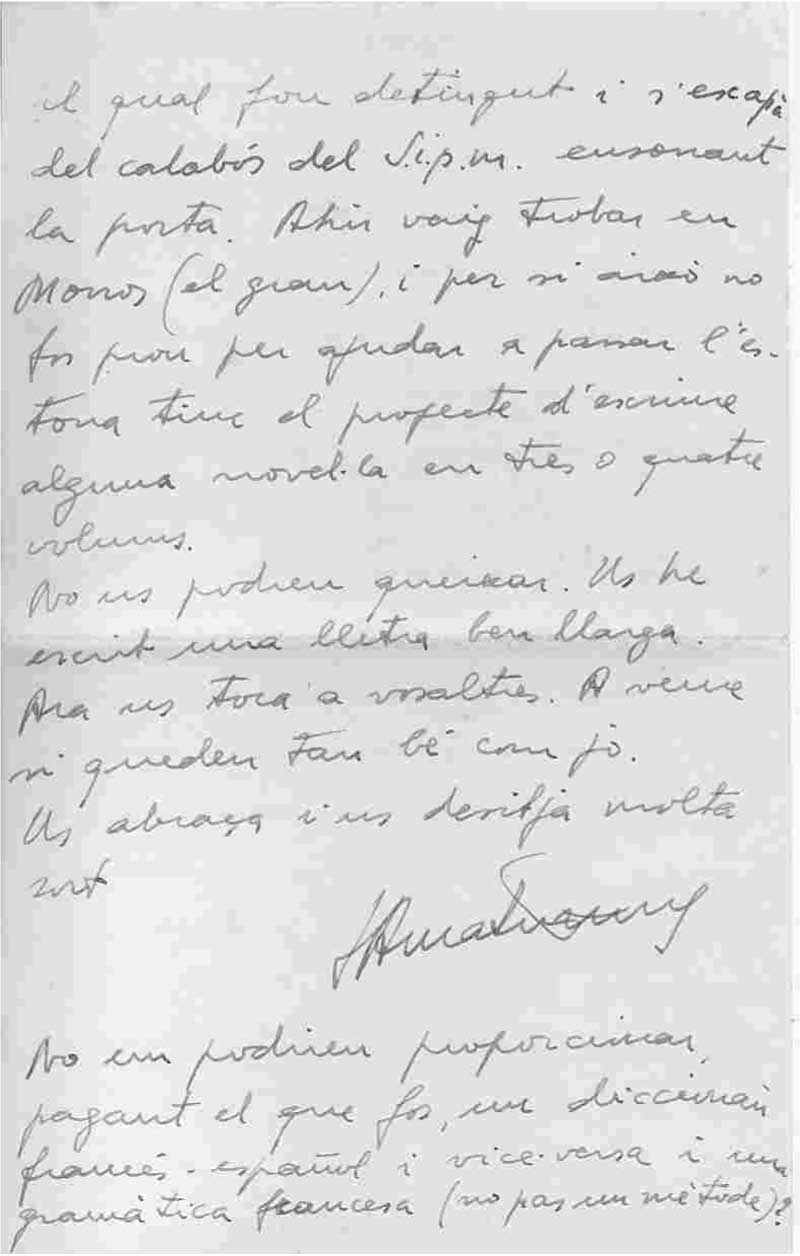 el qual fou detingut i s'escapà
del calabós del S.i.p.m. ensorrant
la porta. Ahir vaig trobar en
Morros (el gran), i per si això no
fos prou per ajudar a passar l'es-
tona tinc el projecte d'escriure
alguna novel·la en tres o quatre
volums.
No us podreu queixar. Us he
escrit una lletra ben llarga.
Ara us toca a vosaltres. A veure
si quedeu tan bé com jo.
Us abraça i us desitja molta
sort
No em podrieu proporcionar,
pagant el que fos, un diccionari
francés-español i vice-versa i una
gramàtica francesa (no pas un mètode)?